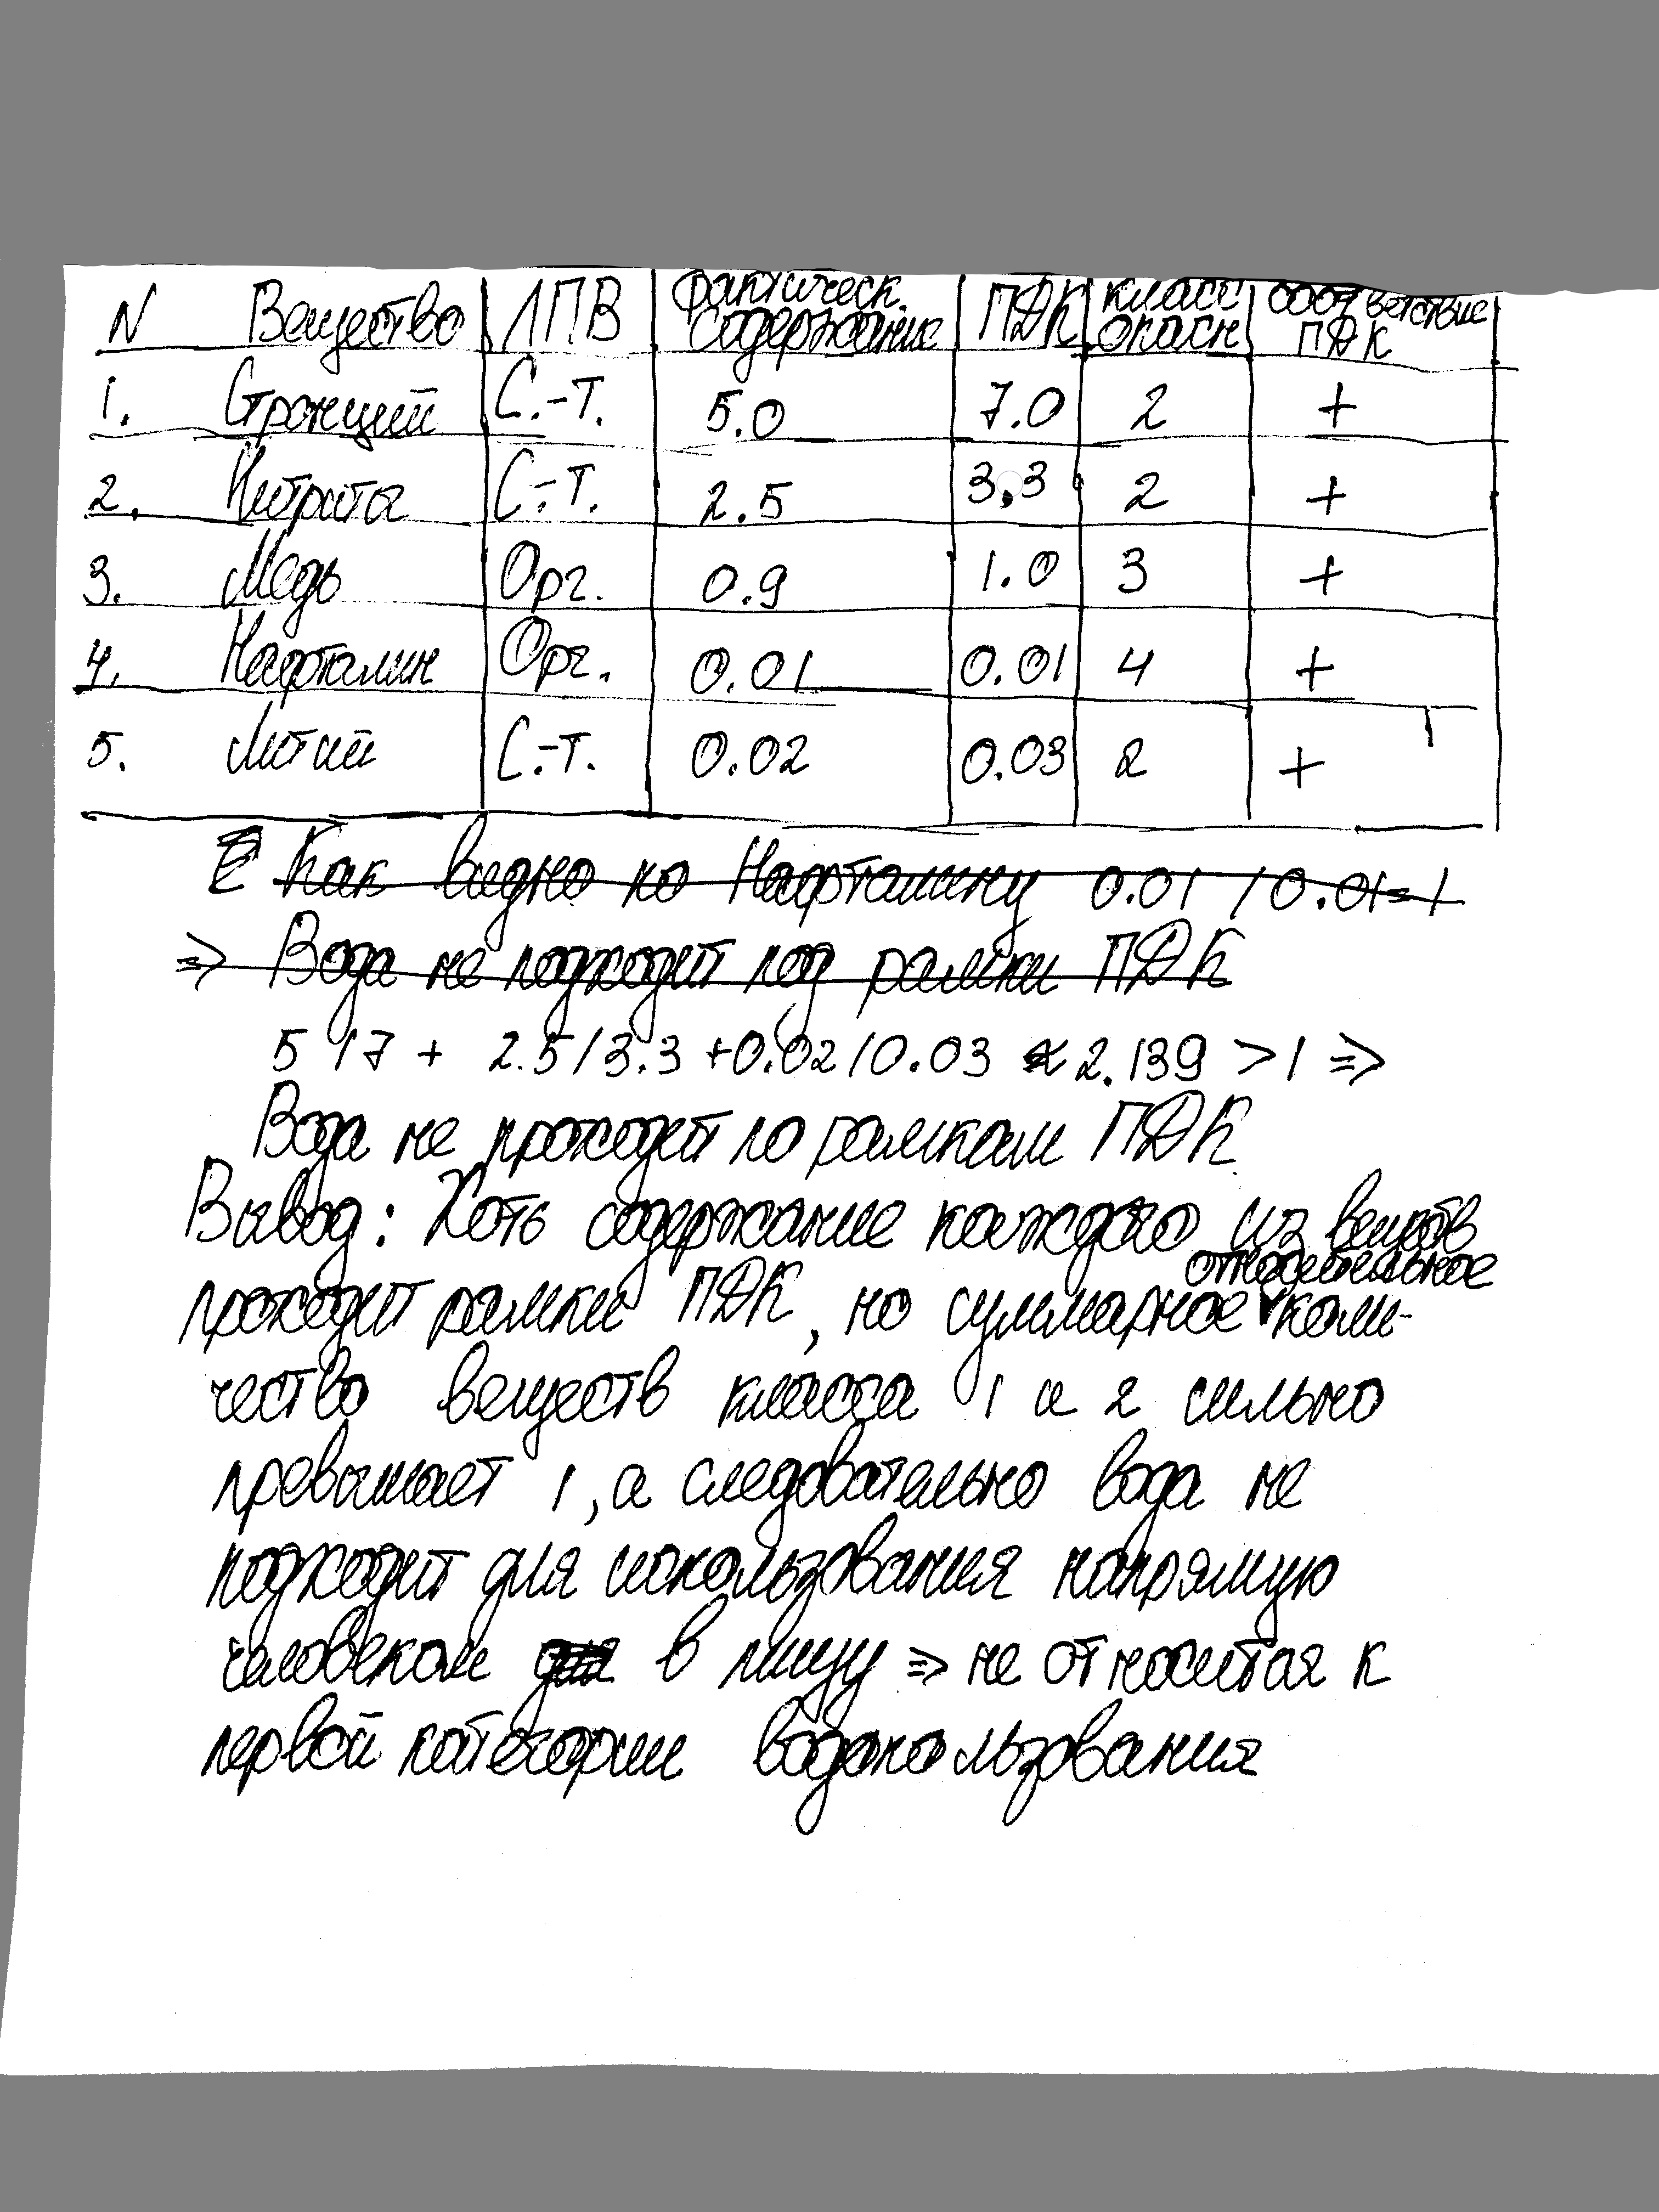 N Вещество ЛПВ Фактическ. содержание ПДК класс опасн соответствие ПДК
1. Стронций С.-Т. 5.0 7.0 2 +
2. Нитриты С.-Т. 2.5 3,3 2 +
3. Медь Орг. 0.9 1.0 3 +
4. Нафталин Орг. 0.01 0.01 4 +
5. Литий С.-Т. 0.02 0.03 2 +
Как видно по Нафталину 0.01 / 0.01=1
=> Вода не подходит под рамки ПДК
5 / 7 + 2.5 / 3.3 + 0.02 / 0.03 ≈ 2.139 > 1 =>
Вода не проходит по рамкам ПДК
Вывод: Хоть содержание каждого из веществ
проходит рамки ПДК, но суммарное относительное коли-
чество веществ класса 1 и 2 сильно
превышает 1, а следовательно вода не
подходит для использования напрямую
человеком в пищу => не относится к
первой категории водопользования